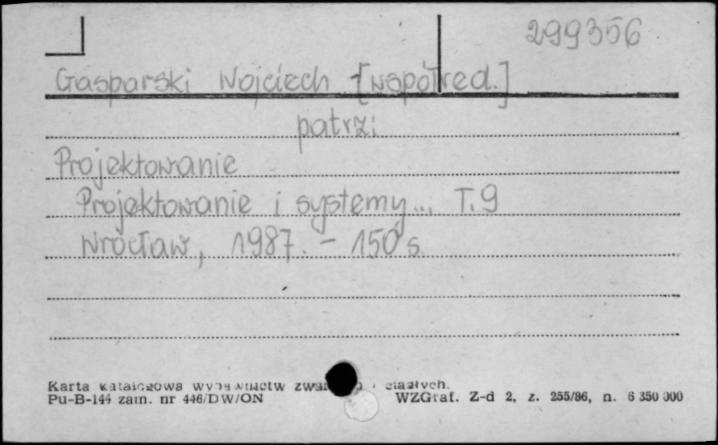 299356
Gasparski Wojciech [współred.]
patrz:
Projektowanie
Projektowanie i systemy... T.9
Wrocław, 1987. - 150 s.
Karta katalogowa wydawnictw zwartych i ciągłych.
Pu-B-144 zam. nr 446/DW/ON WZGraf. Z-d 2, z. 255/86, n. 6 350 000